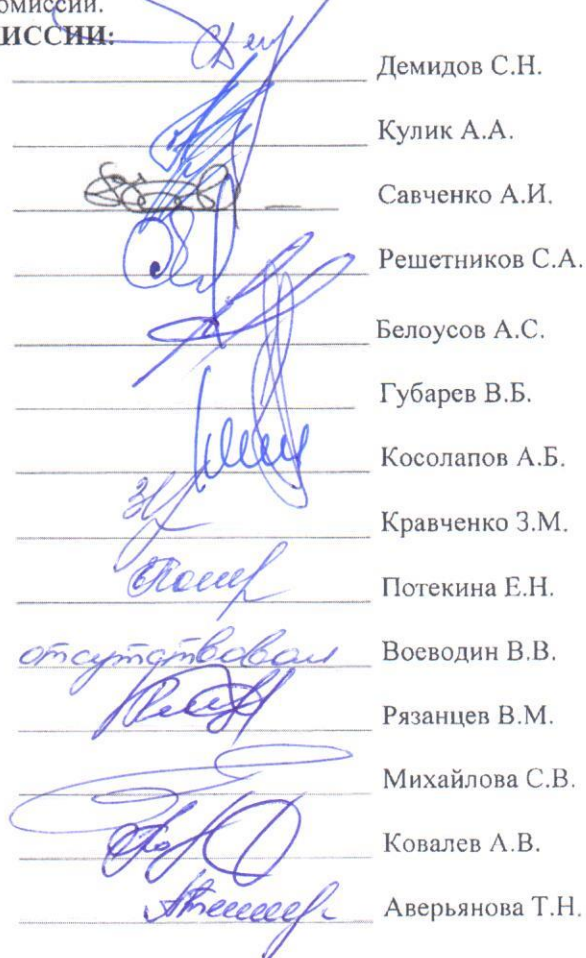 омиссии.
ИССИИ:
Демидов С.Н.
Кулик А.А.
Савченко А.И.
Решетников С.А.
Белоусов А.С.
Губарев В.Б.
Косолапов А.Б.
Кравченко З.М.
Потекина Е.Н.
отсутствовал Воеводин В.В.
Рязанцев В.М.
Михайлова С.В.
Ковалев А.В.
Аверьянова Т.Н.